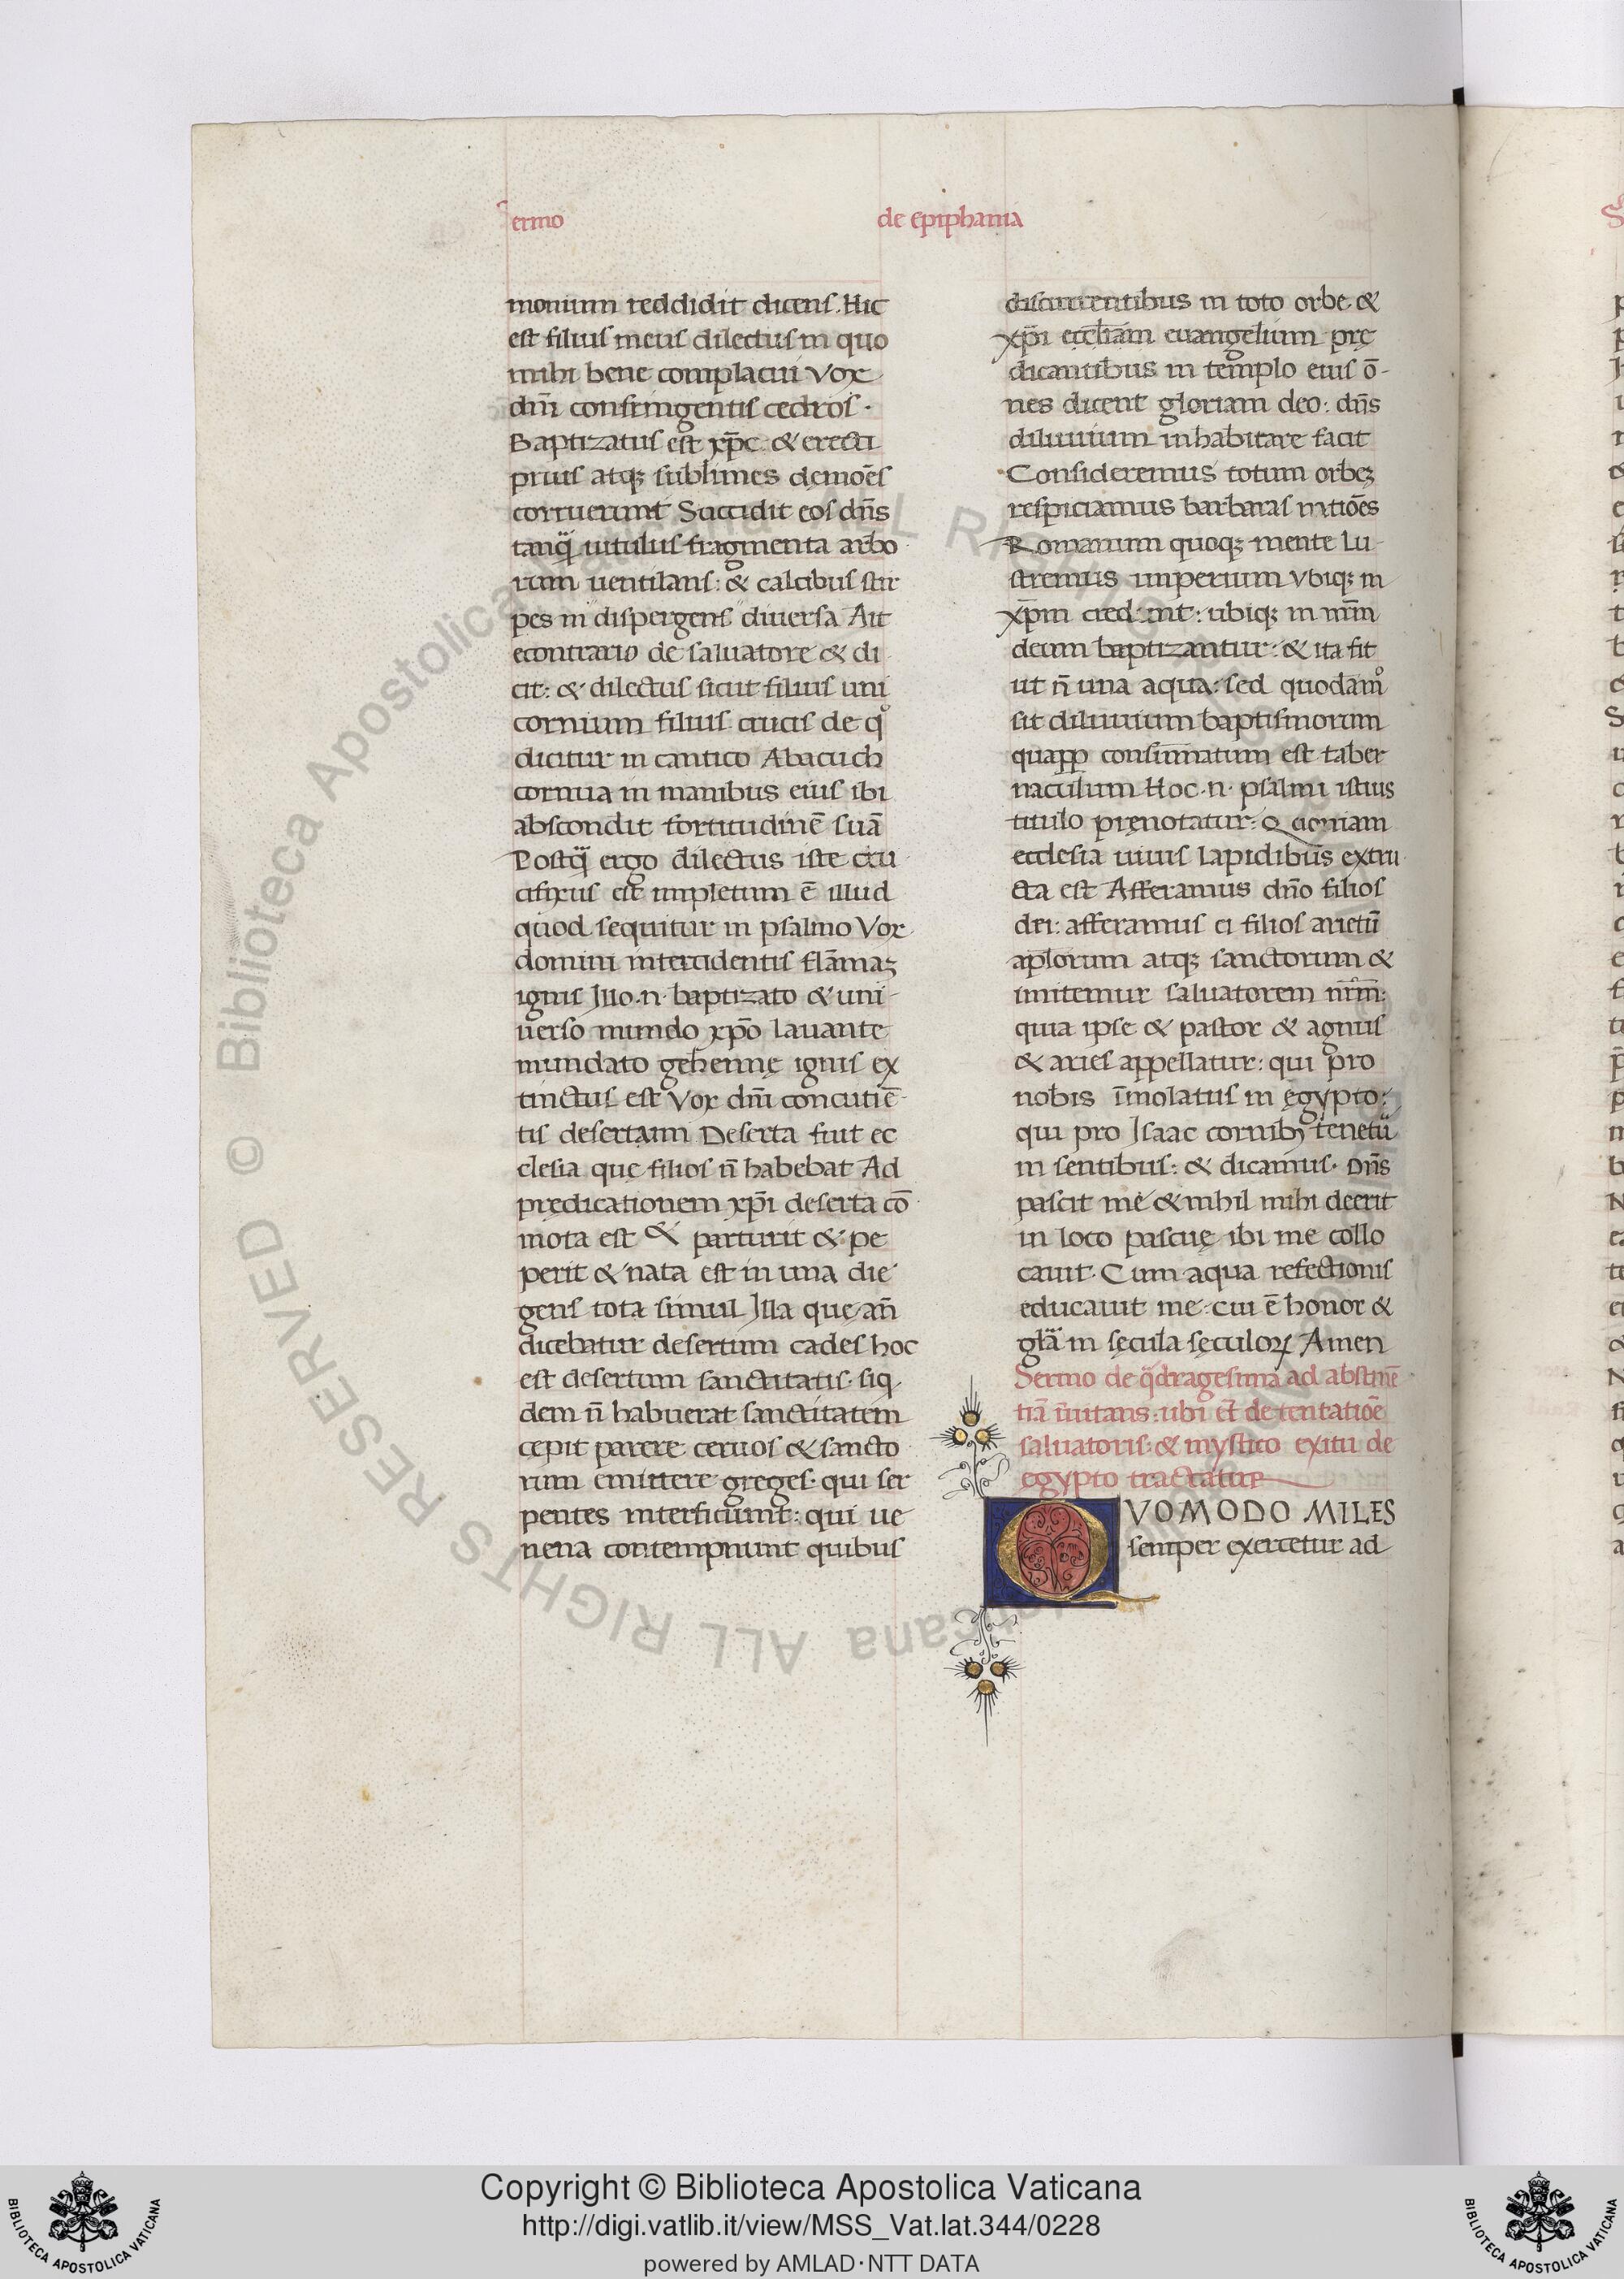 ermo de epiphania
monium reddidit dicens. Hic
est filius meus dilectus in quo
mihi bene complacui Vox
dñi confringentis cedros.
Baptizatus est xp̄c & erecti
prius atq; sublimes demoēs
corruerunt Succidit eos dñs
tanq̃ uitulus fragmenta arbo
rum uentilans: & calcibus stir
pes in dispergens diuersa Ait
econtrario de saluatore & di
cit: & dilectus sicut filius uni
cornium filius crucis de qͦ
dicitur in cantico Abacuch
cornua in manibus eius ibi
abscondit fortitudinē suā
Postq̃ ergo dilectus iste cru
cifixus est impletum ē illud
quod sequitur in psalmo Vox
domini intercidentis flāmaꝫ
ignis Illo .n. baptizato & uni
uerso mundo xp̄o lauante
mundato gehennę ignis ex
tinctus est Vox dñi concutiē
tis desertam Deserta fuit ec
clesia que filios ñ habebat Ad
prędicationem xp̄i deserta cō
mota est & parturit & pe
perit & nata est in una die
gens tota simul Illa que añ
dicebatur desertum cades hoc
est desertum sanctitatis. siq
dem ñ habuerat sanctitatem
cepit parere ceruos & sancto
rum emittere greges. qui ser
pentes interficiunt: qui ue
nena contempnunt quibus
discurrentibus in toto orbe &
xp̄i eccl̄iam euangelium prę
dicantibus in templo eius ō
nes dicent gloriam deo: dñs
diluuium inhabitare facit
Consideremus totum orbeꝫ
respiciamus barbaras natiōes
Romanum quoq; mente lu
stremus imperium Vbiq; in
xp̄m cred unt: ubiq; in nr̄m
deum baptizantur: & ita fit
ut ñ una aqua: sed quodamͦ
sit diluuium baptismorum
quapp̱ consum̄atum est taber
naculum Hoc .n. psalmi istius
titulo prenotatur: Quoniam
ecclesia uiuis lapidibus extru
cta est Afferamus dño filios
dei: afferamus ei filios arietū
ap̄lorum atq; sanctorum &
imitemur saluatorem nr̄m:
quia ipse & pastor & agnus
& aries appellatur: qui pro
nobis īmolatus in ęgypto:
qui pro Isaac cornibꝫ tenetũ
in sentibus: & dicamus. Dñs
pascit me & nihil mihi deerit
in loco pascuę ibi me collo
cauit. Cum aqua refectionis
educauit me: cui ē honor &
gl̄a in sęcula sęculoꝝ Amen
Sermo de q̃dragesima ad abstinē
tiā īuitans: ubi et̄ de tentatiōe
saluatoris: & mystico exitu de
egypto tractatur
QVOMODO MILES
semper exercetur ad
© Biblioteca Apostolica Vaticana ALL RIGHTS RESERVED
Copyright © Biblioteca Apostolica Vaticana
http://digi.vatlib.it/view/MSS_Vat.lat.344/0228
powered by AMLAD·NTT DATA
BIBLIOTECA APOSTOLICA VATICANA
BIBLIOTECA APOSTOLICA VATICANA